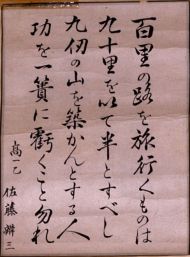 百里の路を旅行くものは
九十里を以て半とすべし
九仞の山を築かんとする人
功を一簣に虧くこと勿れ
高一乙 佐藤辨三